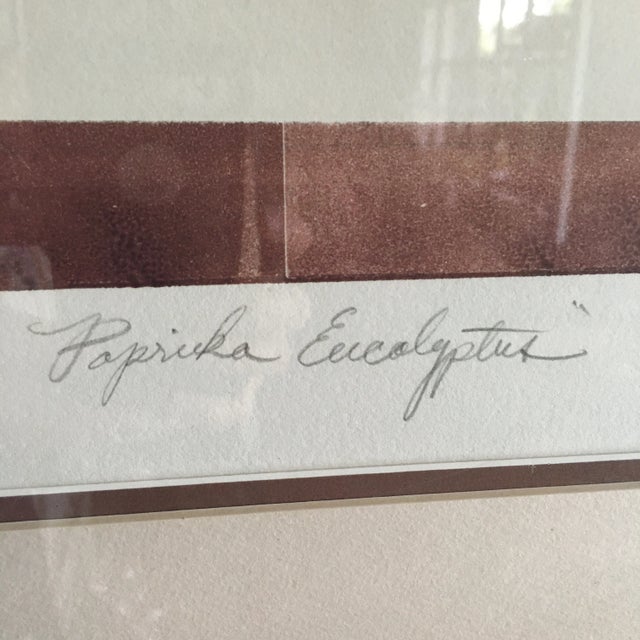 "Paprika Eucalyptus"